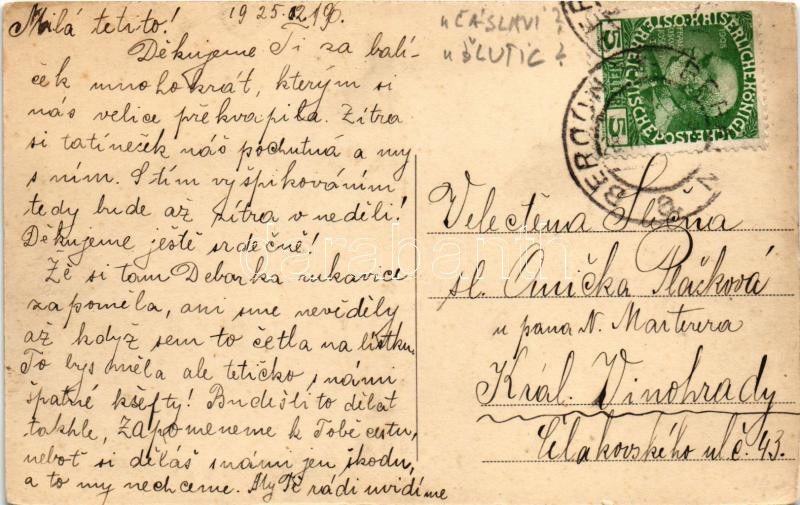 Milá tetito! 1925.12.190.
"ČÁSLAVI?
"ŠLUTIC?
Děkujeme Ti za balí-
ček mnohokrát, kterým si
nás velice překvapila. Zítra
si tatíneček náš pochutná a my
s ním. S tím vyšpikováním
tedy bude až zítra v neděli!
Děkujeme ještě srdečně!
Že si tam Debarka rukavice
zapoměla, ani sme neviděly
až když sem to četla na lístku.
To bys měla ale tetičko s námi
špatné kšefty! Budešli to dělat
takhle, zapomeneme k Tobě cestu,
neboť si děláš s námi jen škodu,
a to my nechceme. My Tě rádi uvidíme
Velectěna Slečna
sl. Anička Plačková
u pana N. Marterera
Král. Vinohrady
Čelakovského ul č. 43.
BEROUN
5
5
darabanth